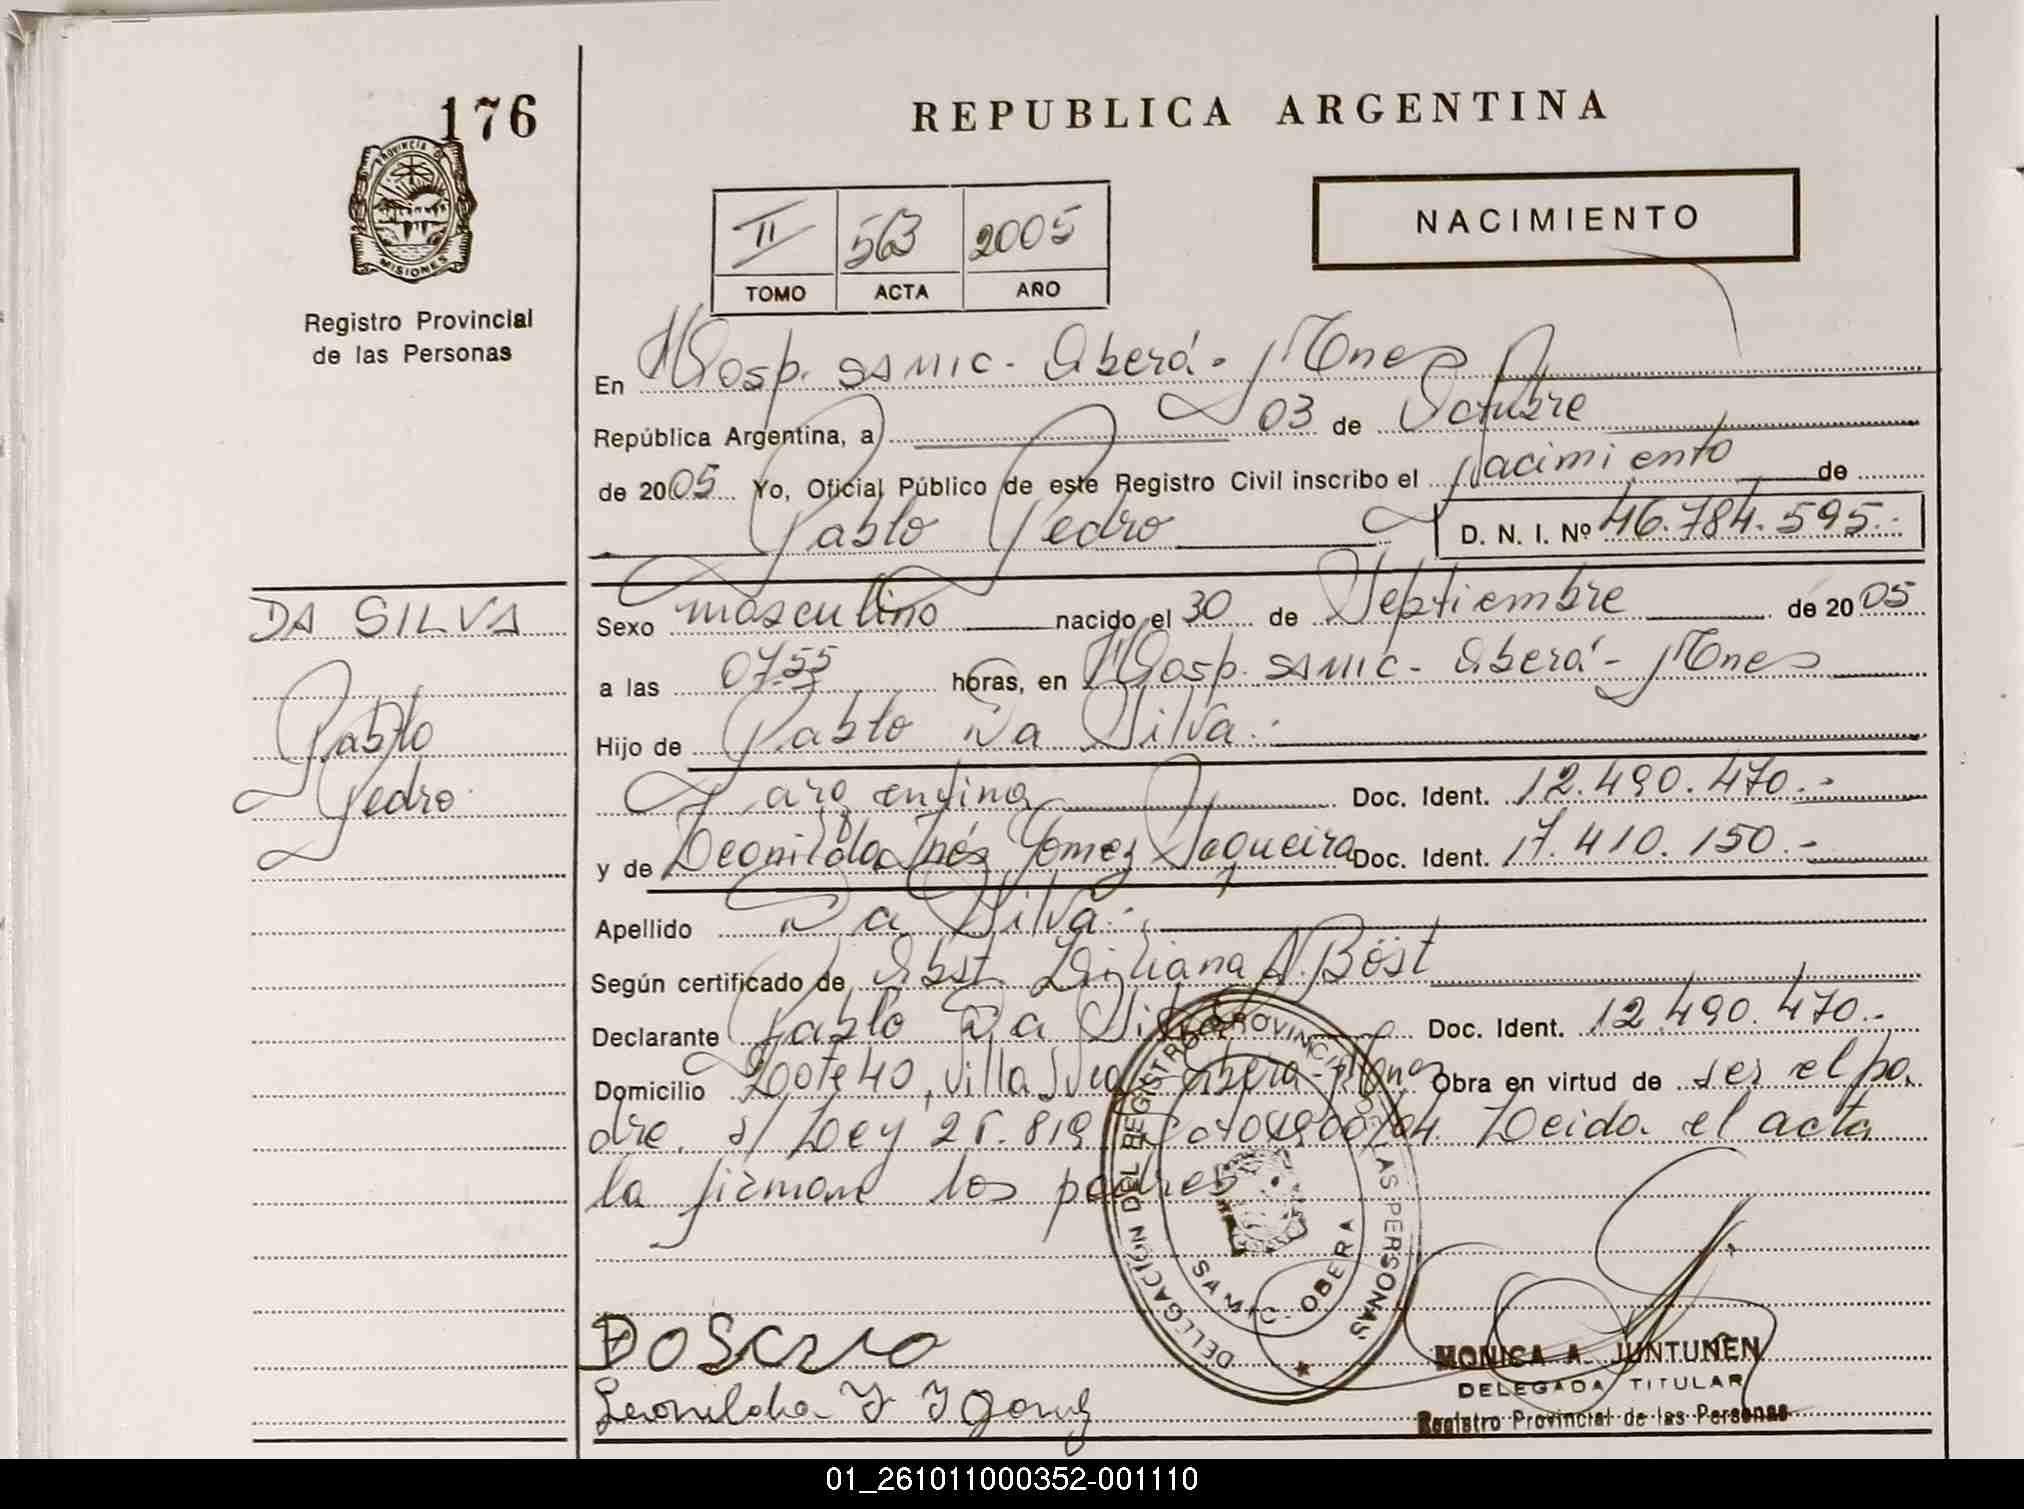 176
PROVINCIA DE
MISIONES
Registro Provincial
de las Personas
DA SILVA
Pablo
Pedro
REPUBLICA ARGENTINA
II 563 2005
TOMO ACTA AÑO
NACIMIENTO
En Hosp. SAMIC - Oberá - Mnes
República Argentina, a 03 de Octubre
de 2005 Yo, Oficial Público de este Registro Civil inscribo el nacimiento de
Pablo Pedro D. N. I. Nº 46.784.595.-
Sexo masculino nacido el 30 de Septiembre de 2005
a las 07.55 horas, en Hosp. SAMIC - Oberá - Mnes
Hijo de Pablo Da Silva.-
argentina Doc. Ident. 12.490.470.-
y de Leonilda Inés Gomez Sequeira Doc. Ident. 17.410.150.-
Apellido Da Silva.-
Según certificado de Obst. Liliana A. Böst
Declarante Pablo Da Silva Doc. Ident. 12.490.470.-
Domicilio Lote 40, Villa Svea - Oberá - Mnes Obra en virtud de ser el pa
dre. s/ Ley 25.819 Leida el acta
la firman los padres
DELEGACIÓN DEL REGISTRO PROVINCIAL DE LAS PERSONAS
SAMIC. OBERA
Leonilda
MONICA A. JUNTUNEN
DELEGADA TITULAR
Registro Provincial de las Personas
01_261011000352-001110